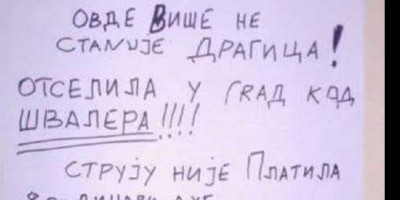 ОВДЕ ВИШЕ НЕ
СТАНУЈЕ ДРАГИЦА!
ОТСЕЛИЛА У ГRАД КОД
ШВАЛЕРА!!!!
СТРУЈУ НИЈЕ ПЛАТИЛА